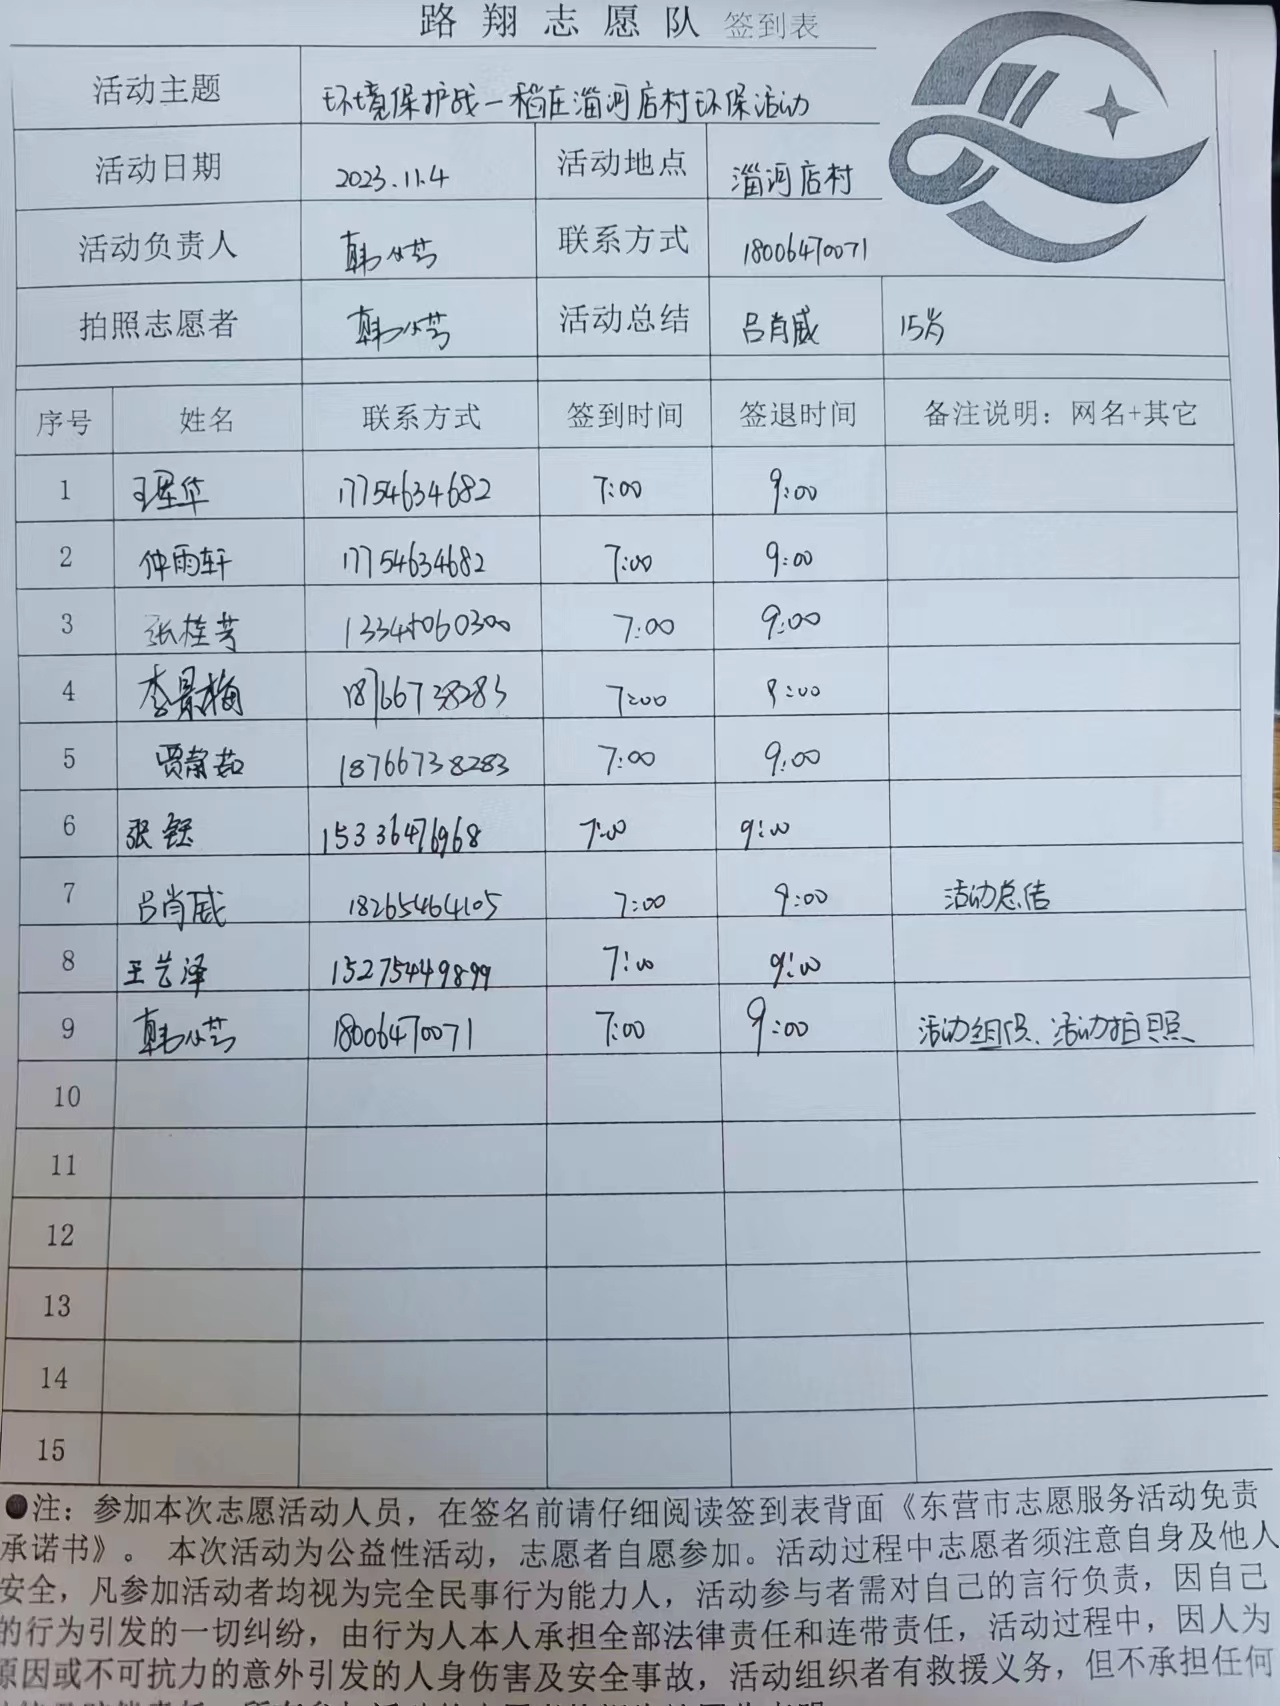 路翔志愿队 签到表
活动主题 环境保护战一稻庄淄河店村环保活动
活动日期 2023.11.4 活动地点 淄河店村
活动负责人 韩小芳 联系方式 18006470071
拍照志愿者 韩小芳 活动总结 吕肖威 15岁
序号 姓名 联系方式 签到时间 签退时间 备注说明：网名+其它
1 17754634682 7:00 9:00
2 仲雨轩 17754634682 7:00 9:00
3 张桂芳 7:00 9:00
4 李景梅 18766738283 7:00 9:00
5 贾静茹 18766738283 7:00 9:00
6 张钰 15336476968 7:00 9:00
7 吕肖威 18265464105 7:00 9:00 活动总结
8 王艺泽 15275449899 7:00 9:00
9 韩小芳 18006470071 7:00 9:00 活动组织、活动拍照
10
11
12
13
14
15
●注：参加本次志愿活动人员，在签名前请仔细阅读签到表背面《东营市志愿服务活动免责
承诺书》。 本次活动为公益性活动，志愿者自愿参加。活动过程中志愿者须注意自身及他人
安全，凡参加活动者均视为完全民事行为能力人，活动参与者需对自己的言行负责，因自己
的行为引发的一切纠纷，由行为人本人承担全部法律责任和连带责任，活动过程中，因人为
原因或不可抗力的意外引发的人身伤害及安全事故，活动组织者有救援义务，但不承担任何